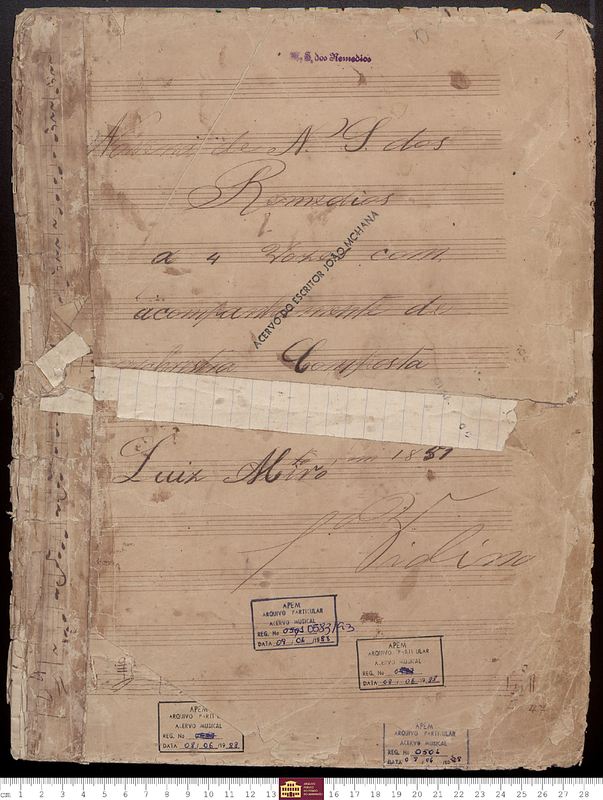 N. S. dos Remedios
Novena de N. S. dos
Remedios
a 4 Vozes com
acompanhamento de
orchestra Composta
em 1851
Luiz Mtro
Vidino
ACERVO DO ESCRITOR JOÃO MOHANA
APEM
ARQUIVO PARTICULAR
ACERVO MUSICAL
REG. No 0505 0583/93
DATA 09 / 06 / 1988
APEM
ARQUIVO PARTICULAR
ACERVO MUSICAL
REG. No
DATA 08 / 06 / 1988
APEM
ARQUIVO PARTIC
ACERVO MUSICAL
REG. No
DATA 08 / 06 / 1988
APEM
ARQUIVO PARTICULAR
ACERVO MUSICAL
REG. No 0506
DATA 08 / 06 / 1988
cm 1 2 3 4 5 6 7 8 9 10 11 12 13 14 15 16 17 18 19 20 21 22 23 24 25 26 27 28